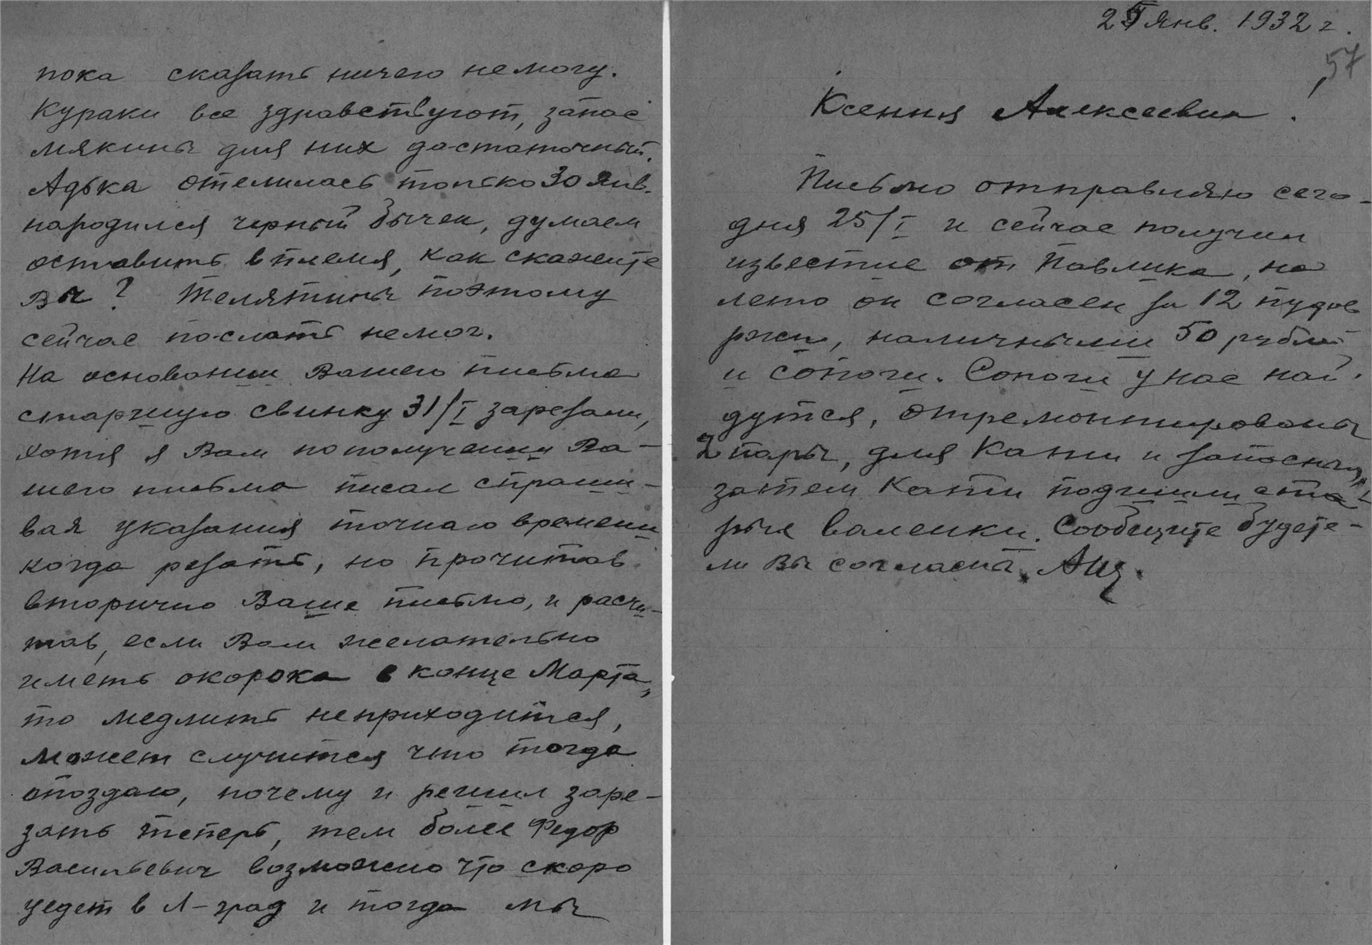 пока сказать ничего немогу.
Кураки все здравствуют, запас
мякины для них достаточный.
Адька отелилась только 30 Янв.
народился черный бычек, думаем
оставить в племя, как скажете
Вы? Телятины поэтому
сейчас послать немог.
На основании Вашего письма
старшую свинку 31/I зарезали,
хотя я Вам пополучении Ва-
шего письма писал спраши-
вая указания точнаго времени
когда резать, но прочитав
вторично Ваше письмо, и расчи-
тав, если Вам желательно
иметь окорока в конце Марта,
то медлить неприходится,
может случится что тогда
опоздаю, почему и решил заре-
зать теперь, тем более Федор
Васильевич возможно что скоро
уедет в Л-град и тогда мы
25 Янв. 1932 г.
57
Ксения Алексеевна.
Письмо отправляю сего-
дня 25/I и сейчас получил
известие от Павлика, на
лето он согласен за 12 пудов
ржи, наличными 50 рублей
и сапоги. Сапоги у нас най-
дутся, отремонтированы
2 пары, для Кати и запасныя,
затем Кати подшили ста-
рыя валенки. Сообщите будете-
ли Вы согласны.